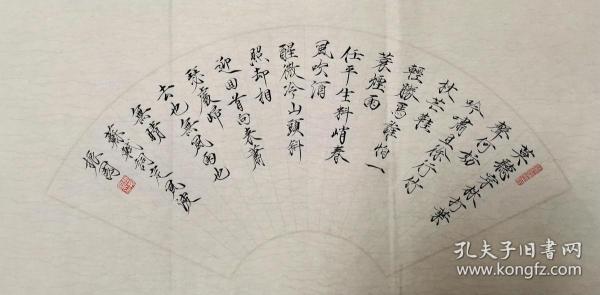 莫聽穿林打葉
聲何妨
吟嘯且徐行竹
杖芒鞋
輕勝馬誰怕一
蓑煙雨
任平生料峭春
風吹酒
醒微冷山頭斜
照却相
迎回首向來蕭
瑟處歸
去也無風雨也
無晴
蘇軾詞定風波
振國
孔夫子旧书网
www.kongfz.com